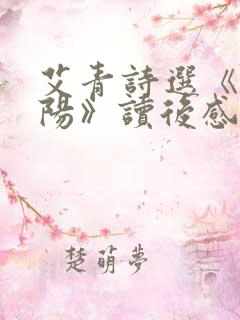 艾青詩選《
陽》讀後感
楚萌夢